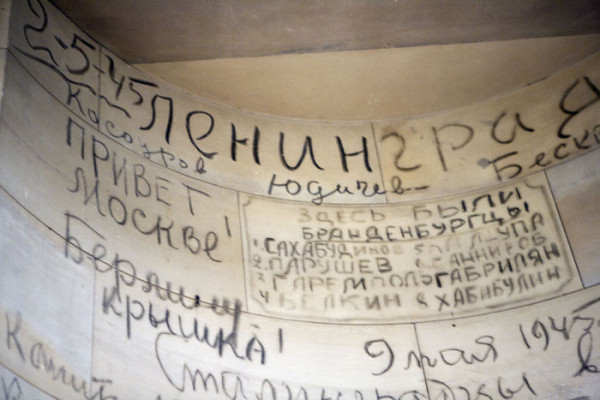 2-5-45
Ленингра
Касауров
Юдичев-
Беск
ПРИВЕТ
МОСКВЕ!
ЗДЕСЬ БЫЛИ
БРАНДЕНБУРГЦЫ
1. САХАБУДИНОВ 5 ПАЛЩУПА
2. ПАРУШЕВ 6 ГАННИРОВ
3 ГАРЕМПОЛО 7 ГАБРИЛЯН
4 БЕЛКИН 8 ХАБИБУЛИН
Берлину
крышка!
9 мая 1945
Сталинградцы в